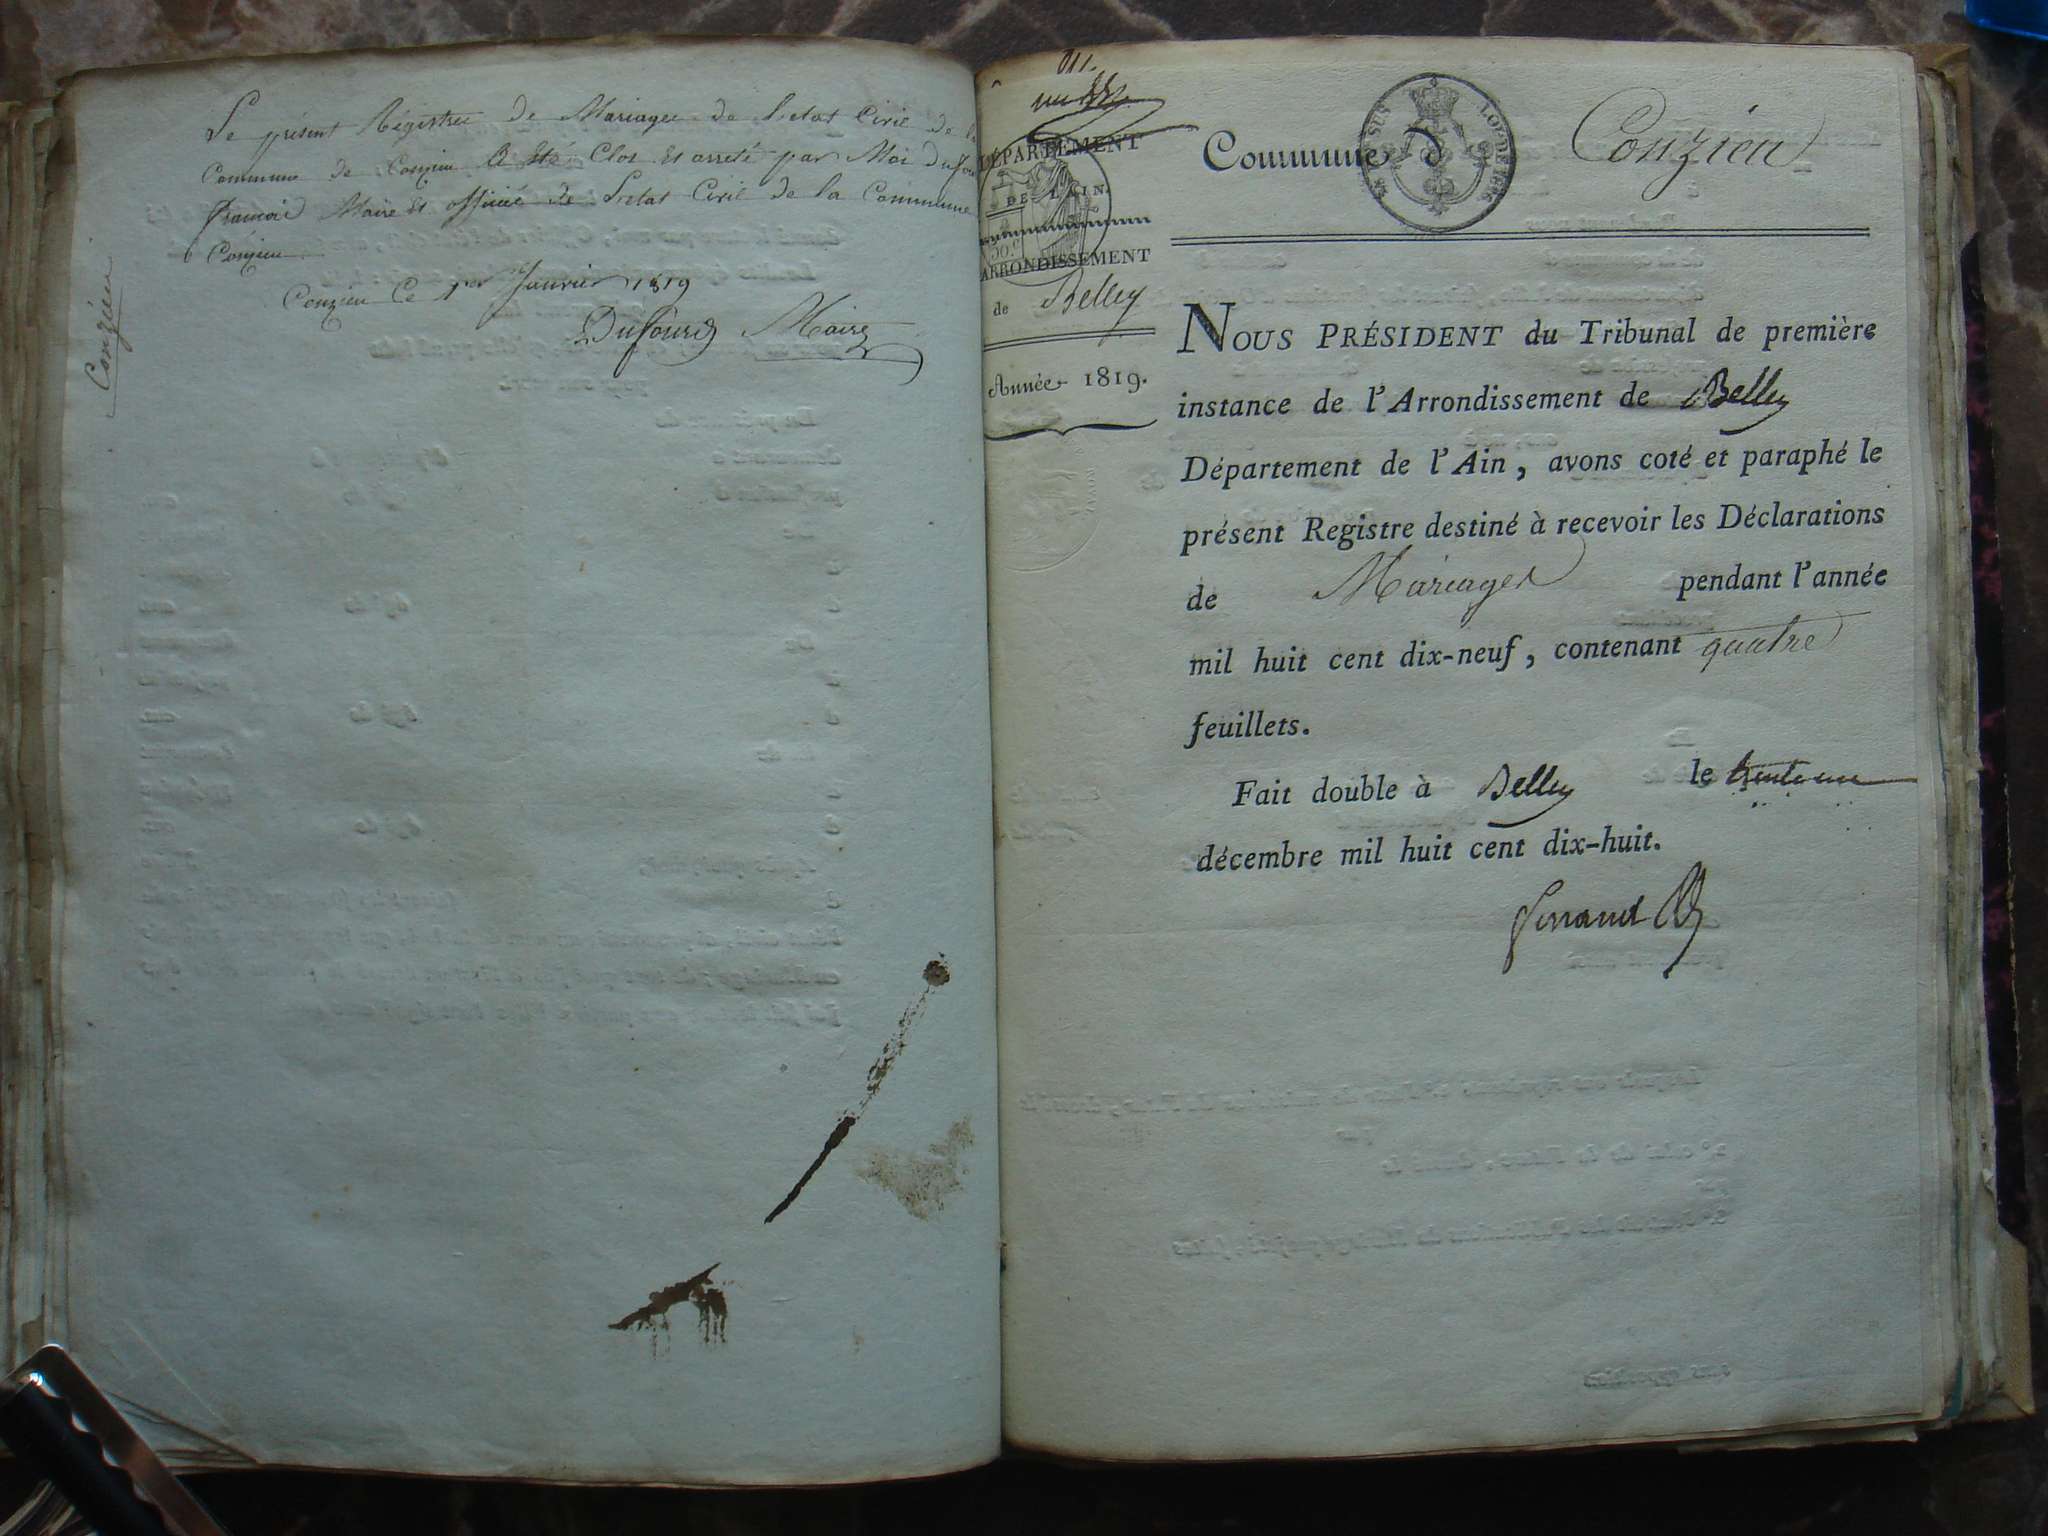 Le présent Régistre de Mariages de L'etat Civil de la
Commune de Conzieu A Eté Clos Et arreté par Moi Dufour
francois Maire Et officié de L'etat Civil de la Commune
Conzieu
Conzieu Ce 1er Janvier 1819
Dufour Maire
Conzieu
DÉPARTEMENT
DE L'AIN.
ARRONDISSEMENT
de Belley
Année 1819.
Commune d Conzieu
NOUS PRÉSIDENT du Tribunal de première
instance de l'Arrondissement de Belley
Département de l'Ain, avons coté et paraphé le
présent Registre destiné à recevoir les Déclarations
de Mariages pendant l'année
mil huit cent dix-neuf, contenant quatre
feuillets.
Fait double à Belley le trente un
décembre mil huit cent dix-huit.